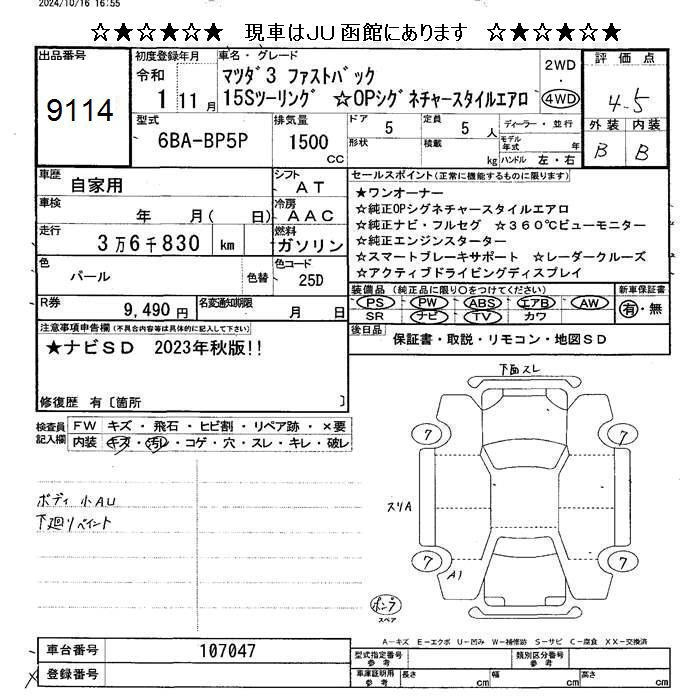 2024/10/16 16:55
☆★☆★☆★ 現車はJU函館にあります ☆★☆★☆★
出品番号
9114
初度登録年月
令和
1 11月
車名・グレード
マツダ3 ファストバック
15Sツーリング ☆OPシグネチャースタイルエアロ
2WD
・
4WD
評価点
4.5
外装 内装
B B
型式
6BA-BP5P
排気量
1500
CC
ドア
5
定員
5 人
形状
積載
kg
ディーラー・並行
モデル年式 年
ハンドル 左・右
車歴
自家用
シフト
AT
車検
年 月( 日)
冷房
AAC
走行
3万6千830 km
燃料
ガソリン
色
パール
色替
色コード
25D
R券
9,490円
名変通知期限
月 日
セールスポイント(正常に機能するものに限ります)
★ワンオーナー
☆純正OPシグネチャースタイルエアロ
☆純正ナビ・フルセグ ☆360℃ビューモニター
★純正エンジンスターター
☆スマートブレーキサポート ☆レーダークルーズ
☆アクティブドライビングディスプレイ
装備品(純正品に限り○をつけてください)
PS PW ABS エアB AW
SR ナビ TV カワ
新車保証書
有・無
後日品
保証書・取説・リモコン・地図SD
注意事項申告欄(不具合内容等は具体的に記入して下さい)
★ナビSD 2023年秋版!!
修復歴 有〔箇所 〕
検査員記入欄
FW キズ・飛石・ヒビ割・リペア跡・×要
内装 キズ・汚レ・コゲ・穴・スレ・キレ・破レ
ボディ 小AU
下廻リペイント
下面スレ
7
7
スリA
7
7
A1
ポンプ
スペア
A-キズ E-エクボ U-凹み W-補修跡 S-サビ C-腐食 XX-交換済
車台番号
107047
登録番号
型式指定番号
参考
類別区分番号
参考
車庫証明用
参考
長さ cm
幅 cm
高さ cm